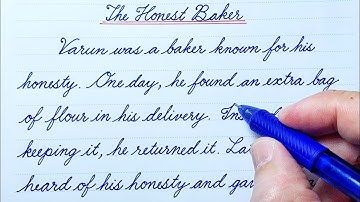 The Honest Baker
Varun was a baker known for his
honesty. One day, he found an extra bag
of flour in his delivery.
keeping it, he returned it.
heard of his honesty and